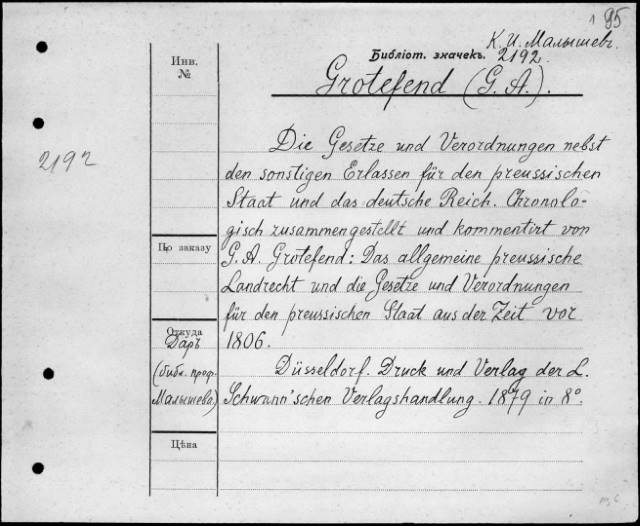 195
К. И. Малышевъ
Библіот. значекъ. 2192.
Grotefend (G. A.).
Инв.
№
2192
Die Gesetze und Verordnungen nebst
den sonstigen Erlassen für den preussischen
Staat und das deutsche Reich. Chronolo-
gisch zusammengestellt und kommentirt von
По заказу
G. A. Grotefend: Das allgemeine preussische
Landrecht und die Gesetze und Verordnungen
für den preussischen Staat aus der Zeit vor
1806.
Откуда
Даръ
(библ. проф.
Малышева)
Düsseldorf. Druck und Verlag der L.
Schwann'schen Verlagshandlung. 1879 in 8°.
Цѣна